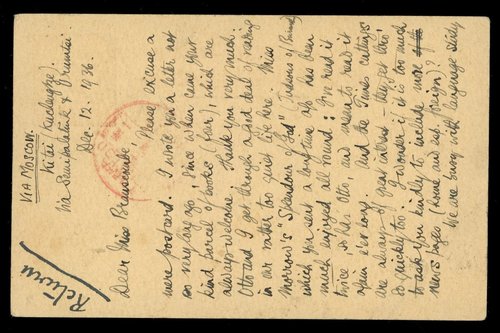 VIA MOSCOW.
Kitei (Kuchengtze).
Via Semipalatinsk & Urumtsi
Dec. 12. 1936.
Dear Miss Branscombe, Please excuse a
mere postcard. I wrote you a letter not
so very long ago; since when came your
kind parcel of books (4 war), which are
always welcome. Thank you very much.
Otto and I get through a good deal of reading
in our rather too quiet life here. Miss
Morrow's "Splendour of God" (Judsons of Burma)
which you sent a long time ago has been
much enjoyed all round; I've read it
twice so has Otto, and mean to read it
again ere long. and the Times cuttings
are always of great interest - they get 'low'
so quickly too. I wonder if it is too much
to ask you kindly to include more of the
news pages (home and esp. foreign)?
We are busy with language study
Return